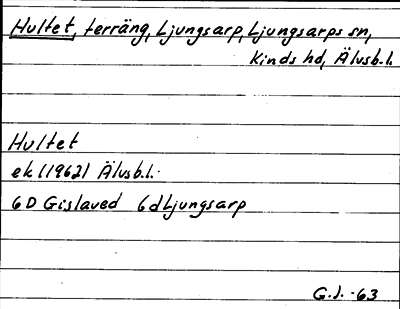 Hultet, terräng, Ljungsarp, Ljungsarps sn,
Kinds hd, Älvsb.l.
Hultet
ek (1962) Älvsb.l.
6D Gislaved 6d Ljungsarp
G.J. -63